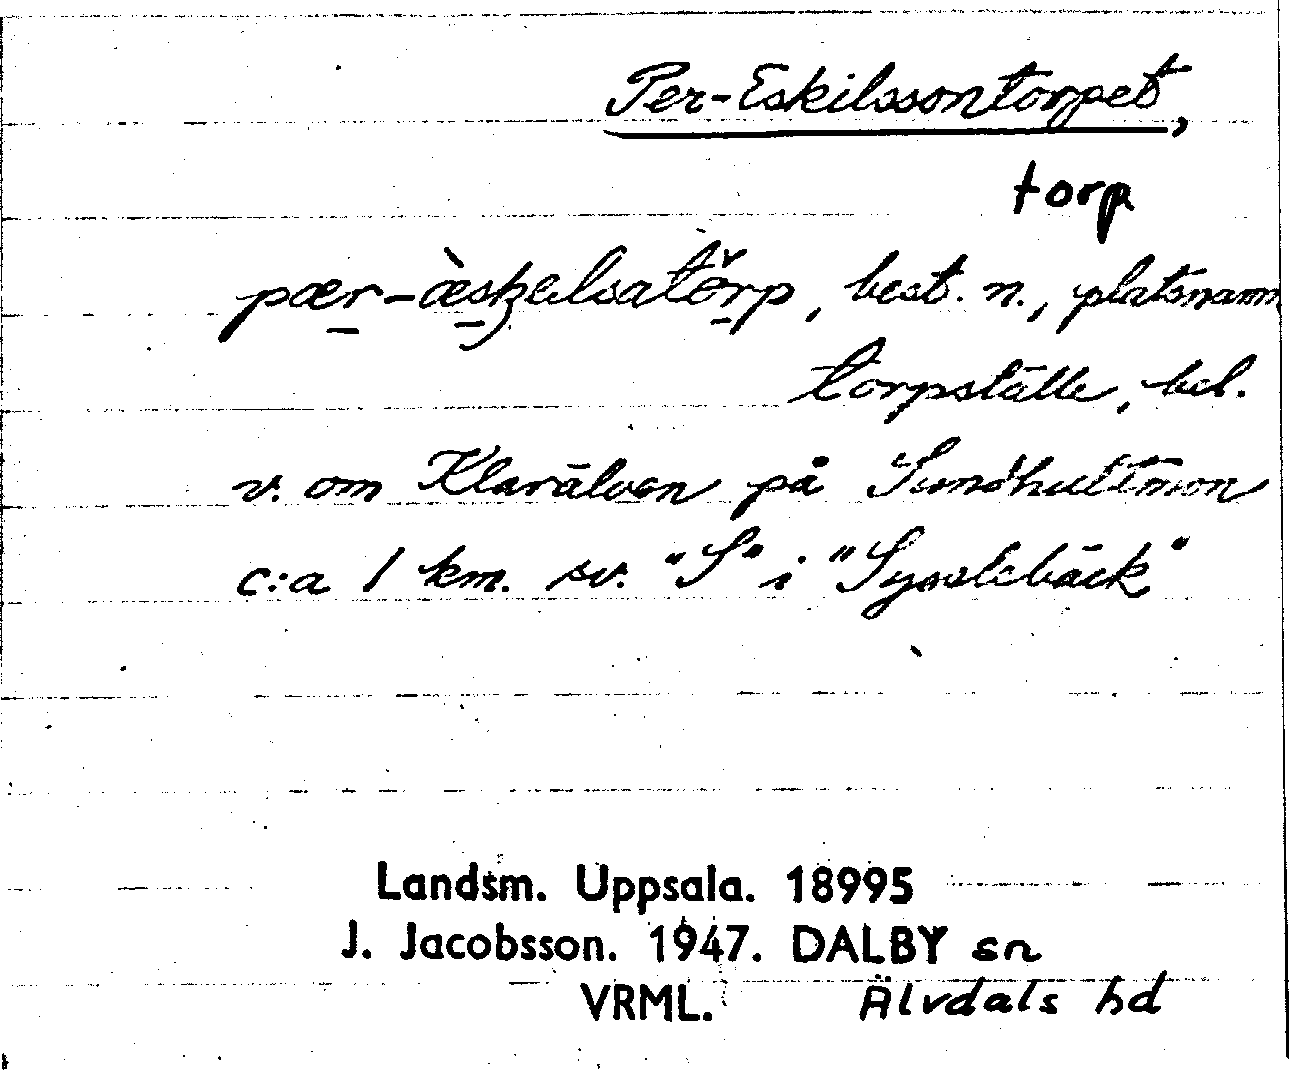 Per-Eskilssontorpet,
torp
pær-æ̀skelsatŏrp, best. n., platsnamn
torpställe, bel.
v. om Klarälven på Sundhultmon
c:a 1 km. sv. "S" i "Sysslebäck"
Landsm. Uppsala. 18995
J. Jacobsson. 1947. DALBY sn
VRML. Älvdals hd